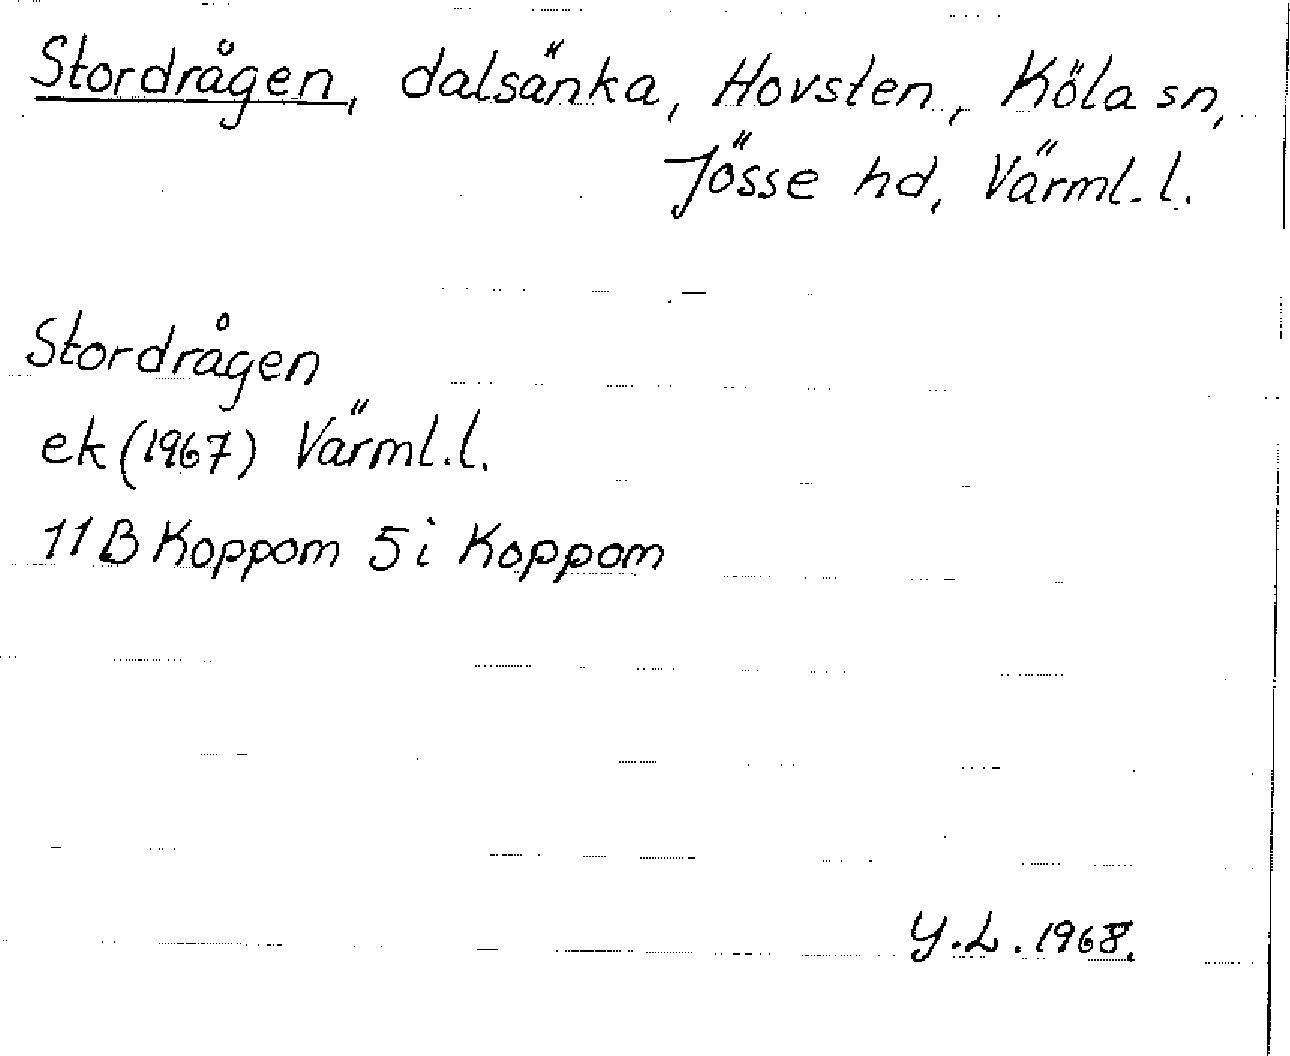 Stordrågen, dalsänka, Hovsten, Köla sn,
Jösse hd, Värml. l.
Stordrågen
ek (1967) Värml. l.
11B Koppom 5i Koppom
Y.L. 1968.